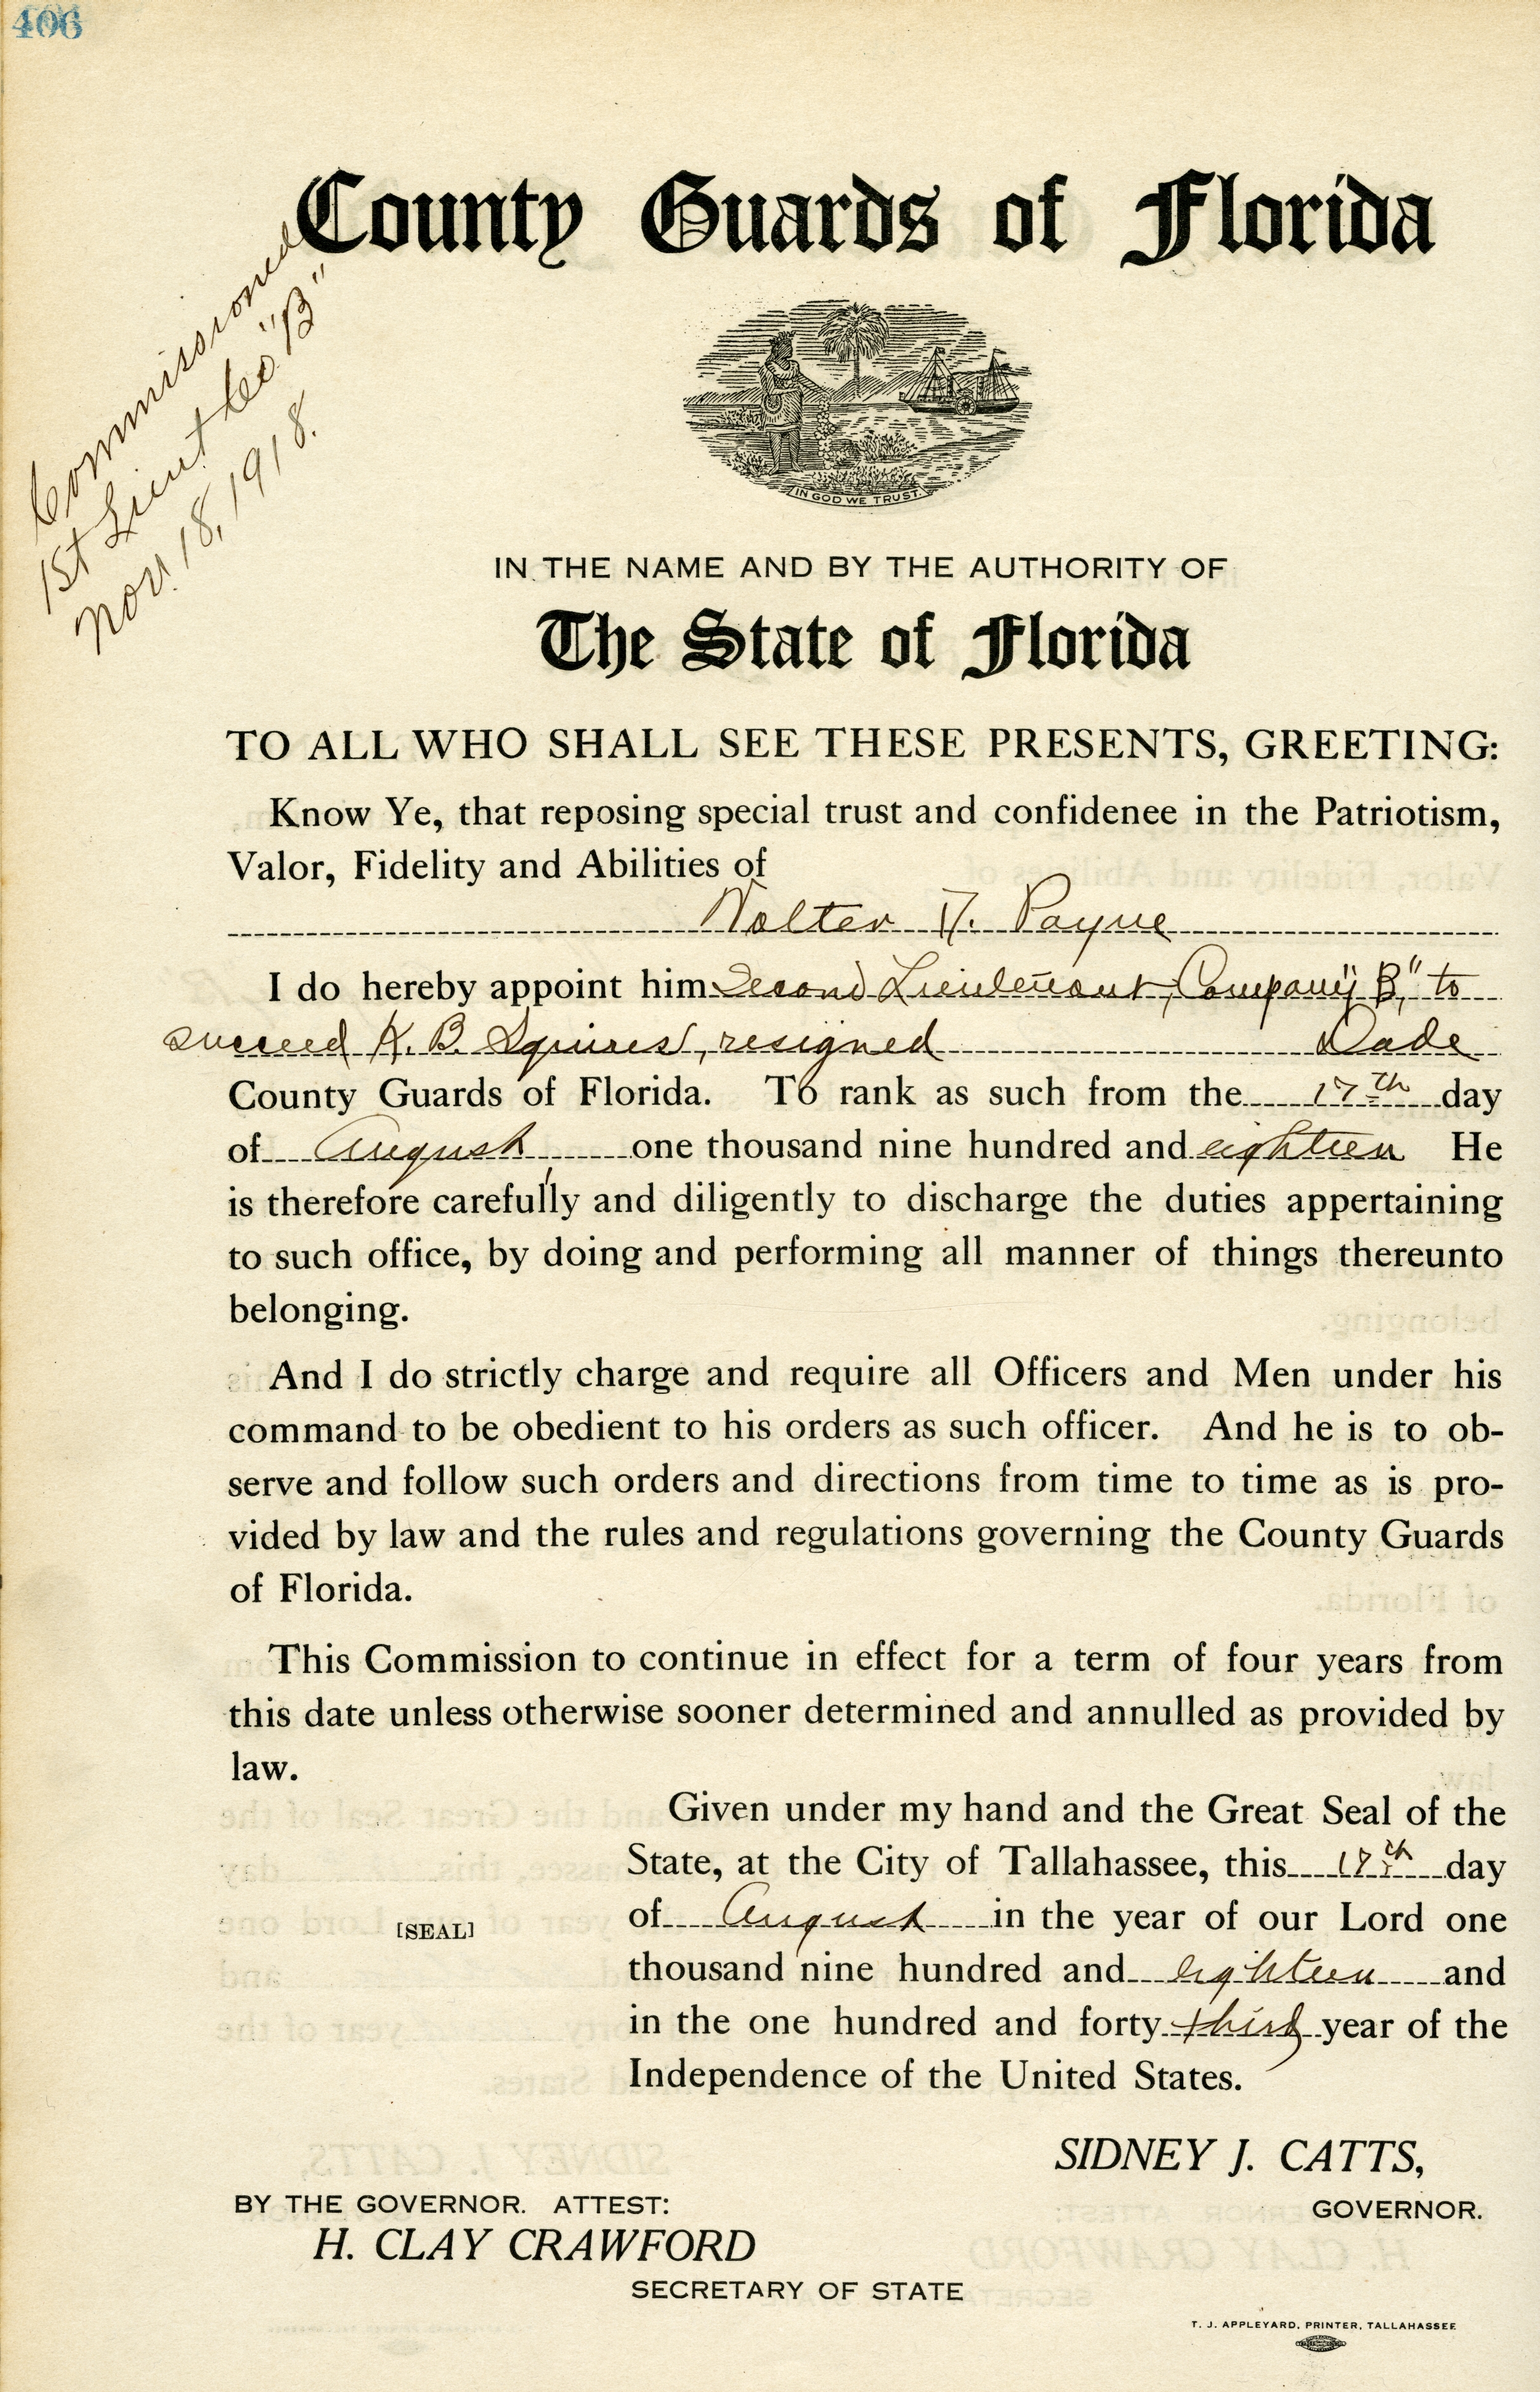 406
County Guards of Florida
Commissioned
1st Lieut Co. "B"
Nov. 18, 1918.
IN GOD WE TRUST.
IN THE NAME AND BY THE AUTHORITY OF
The State of Florida
TO ALL WHO SHALL SEE THESE PRESENTS, GREETING:
Know Ye, that reposing special trust and confidenee in the Patriotism,
Valor, Fidelity and Abilities of
Walter D. Payne
I do hereby appoint him Second Lieutenant, Company "B," to
succeed K. B. Squires, resigned Dade
County Guards of Florida. To rank as such from the 17th day
of August one thousand nine hundred and eighteen He
is therefore carefully and diligently to discharge the duties appertaining
to such office, by doing and performing all manner of things thereunto
belonging.
And I do strictly charge and require all Officers and Men under his
command to be obedient to his orders as such officer. And he is to ob-
serve and follow such orders and directions from time to time as is pro-
vided by law and the rules and regulations governing the County Guards
of Florida.
This Commission to continue in effect for a term of four years from
this date unless otherwise sooner determined and annulled as provided by
law.
Given under my hand and the Great Seal of the
State, at the City of Tallahassee, this 17th day
of August in the year of our Lord one
[SEAL]
thousand nine hundred and eighteen and
in the one hundred and forty third year of the
Independence of the United States.
SIDNEY J. CATTS,
GOVERNOR.
BY THE GOVERNOR. ATTEST:
H. CLAY CRAWFORD
SECRETARY OF STATE
T. J. APPLEYARD, PRINTER, TALLAHASSEE